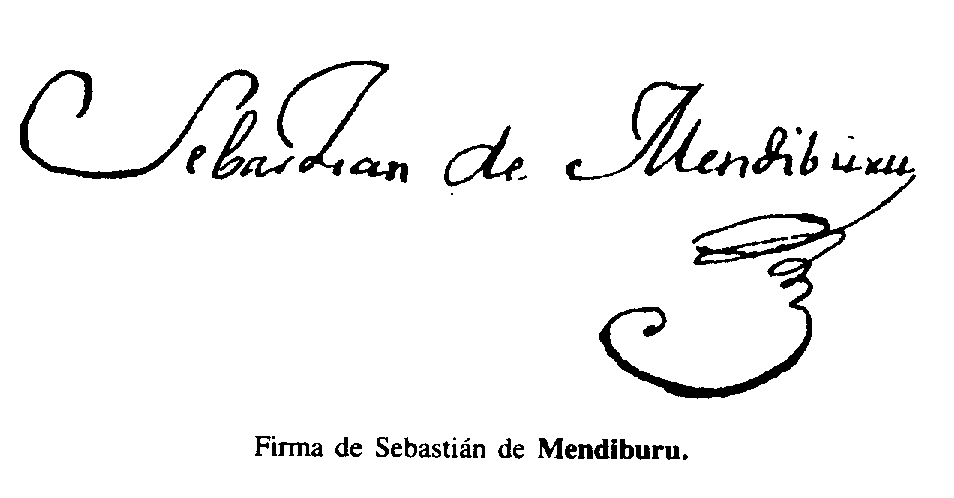 Sebastian de Mendiburu
Firma de Sebastián de Mendiburu.